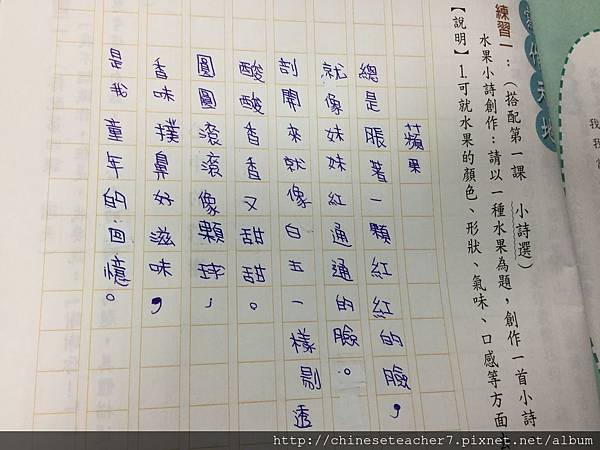 我
我
作天地
練習一：（搭配第一課　小詩選）
水果小詩創作：請以一種水果為題，創作一首小詩
【說明】1.可就水果的顏色、形狀、氣味、口感等方面
蘋果
總是脹著一顆紅紅的臉，
就像妹妹紅通通的臉。
剖開來就像白玉一樣剔透
酸酸香香又甜甜。
圓圓滾滾像顆球，
香味撲鼻好滋味，
是我童年的回憶。
http://chineseteacher7.pixnet.net/album